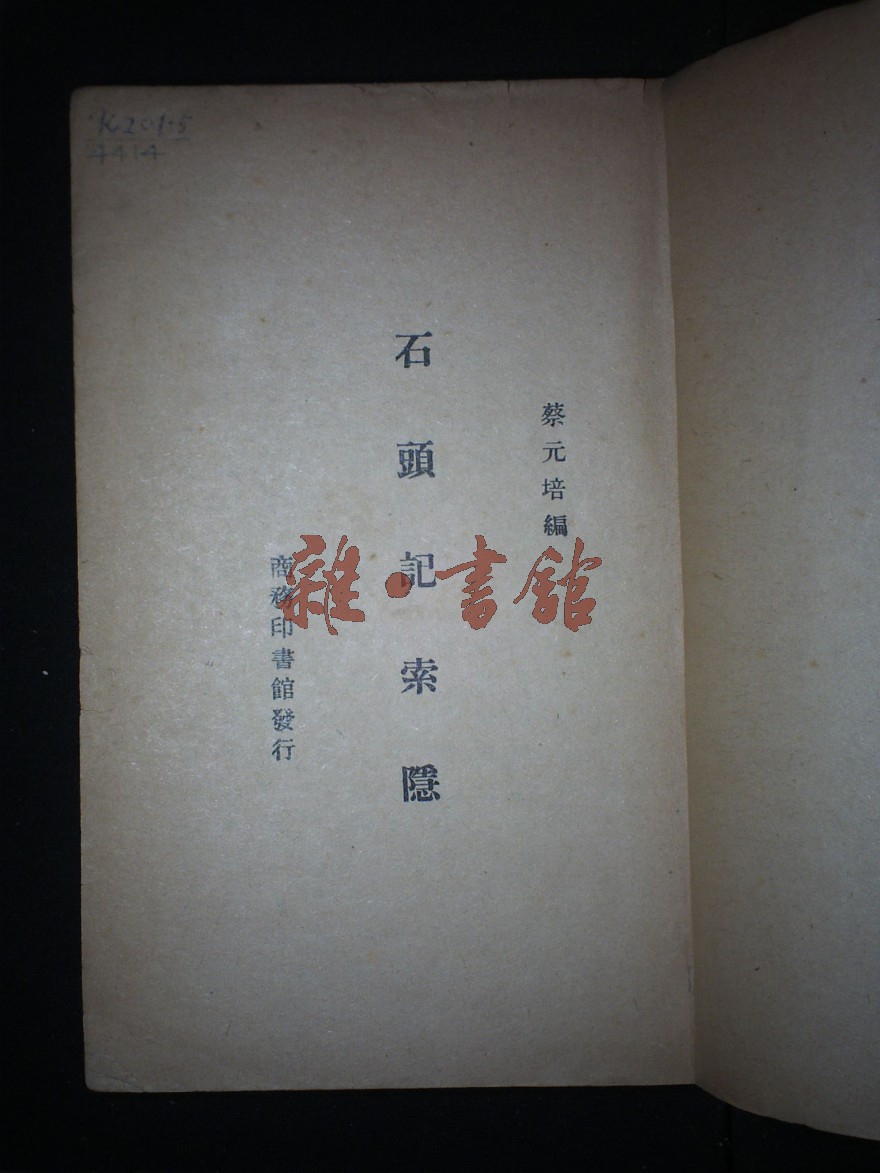 K201·5
4414
蔡元培編
石頭記索隱
商務印書館發行
雜·書館